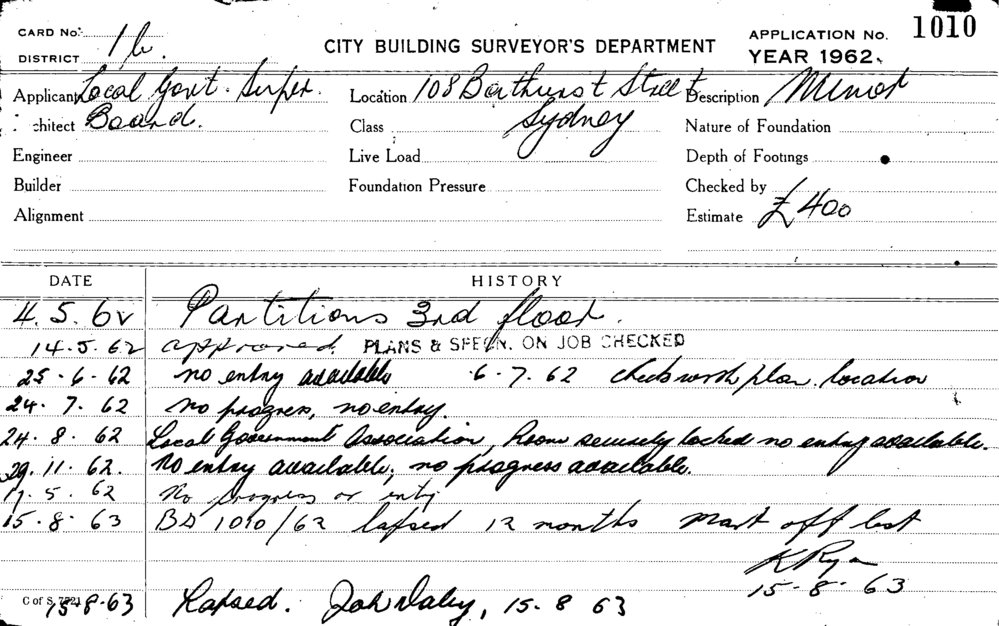 CARD No.
DISTRICT 1b.
CITY BUILDING SURVEYOR'S DEPARTMENT
APPLICATION No. 1010
YEAR 1962.
Applicant Local Govt. Super.
Location 108 Bathurst Street
Description Minor
chitect Board.
Class Sydney
Nature of Foundation
Engineer
Live Load
Depth of Footings
Builder
Foundation Pressure
Checked by
Alignment
Estimate £400
DATE HISTORY
4.5.62 Partitions 3rd floor.
14.5.62 approved. PLANS & SPECN. ON JOB CHECKED
25-6-62 no entry available 6-7.62 checks with plan. location
24.7.62 No progress, no entry.
24.8.62 Local Government Association, Room securely locked no entry available.
29.11.62. No entry available; no progress available.
17.5.62 No progress or entry
15.8.63 BS 1010/62 lapsed 12 months Mark off list
K Ryan
15-8-63
C of S. 7721
15.8.63 Lapsed. John Daley, 15.8 63